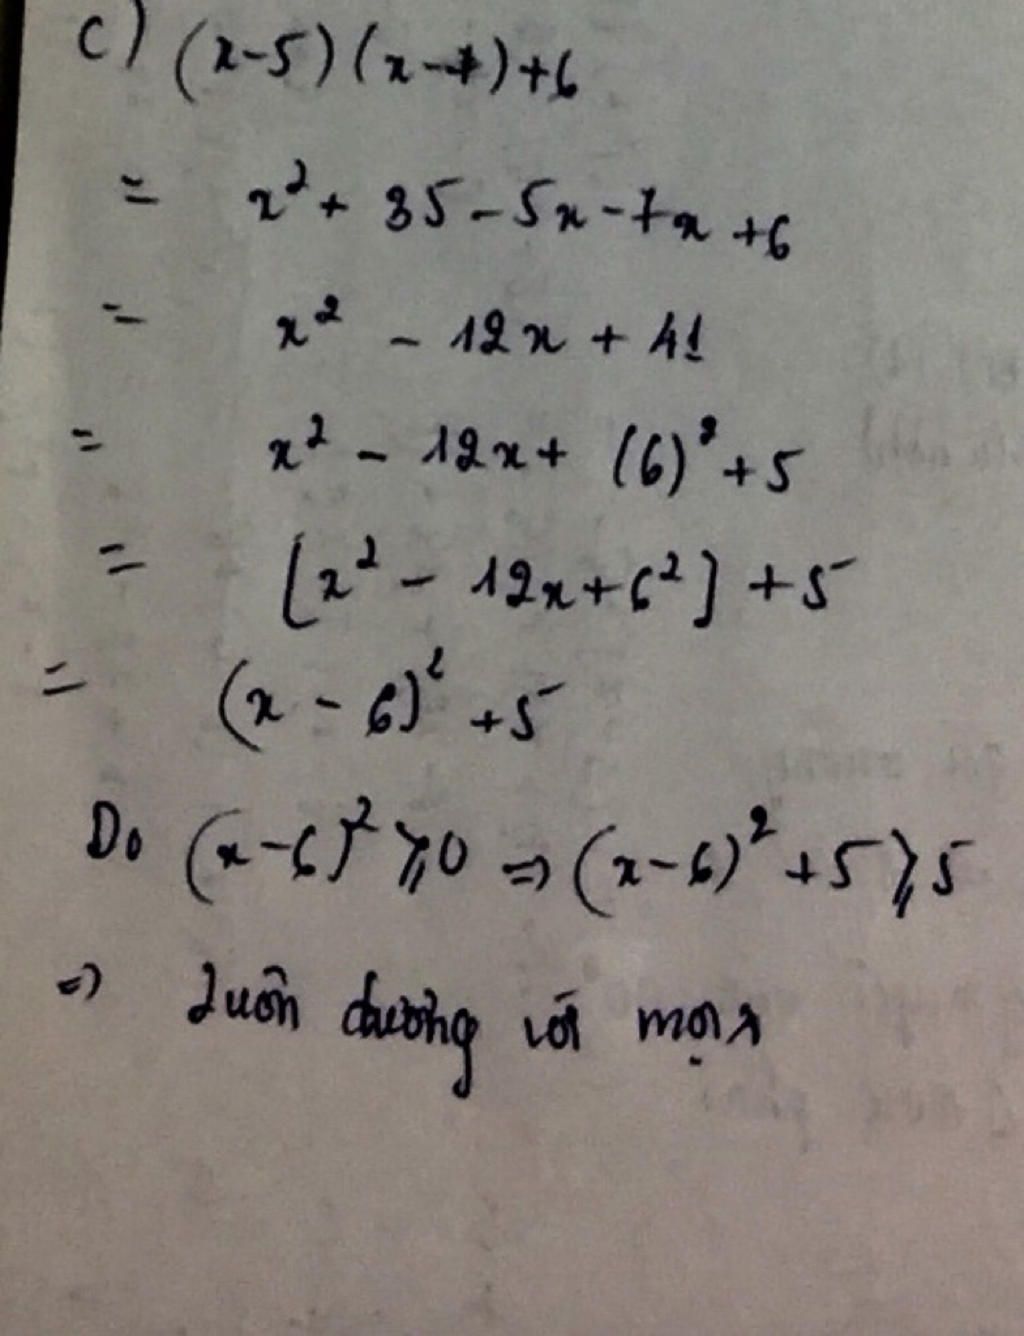 c) (x-5)(x-7)+6
= x² + 35 - 5x - 7x + 6
= x² - 12x + 41
= x² - 12x + (6)² + 5
= [x² - 12x + 6²] + 5
= (x - 6)² + 5
Do (x-6)² ⩾ 0 => (x-6)² + 5 ⩾ 5
=> Luôn dương với mọi x